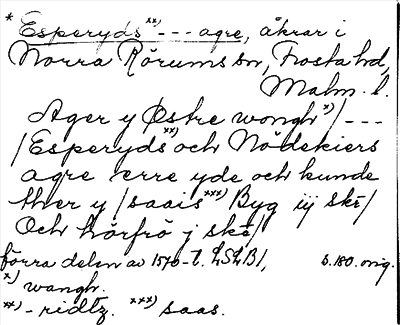 * Esperyds xx) --- agre, åkrar i
Norra Rörums sn, Frosta hd,
Malm. l.
Ager y Østre wongh x) / ---
/ Esperyds xx) och Nödekiers
agre ere yde och kunde
ther y / saais xxx) Byg iij skē /
Och hörfrö j skē /
förra delen av 1570-t. LSLB 1, s. 180. orig.
x) wangh.
xx) - ridtz. xxx) saas.